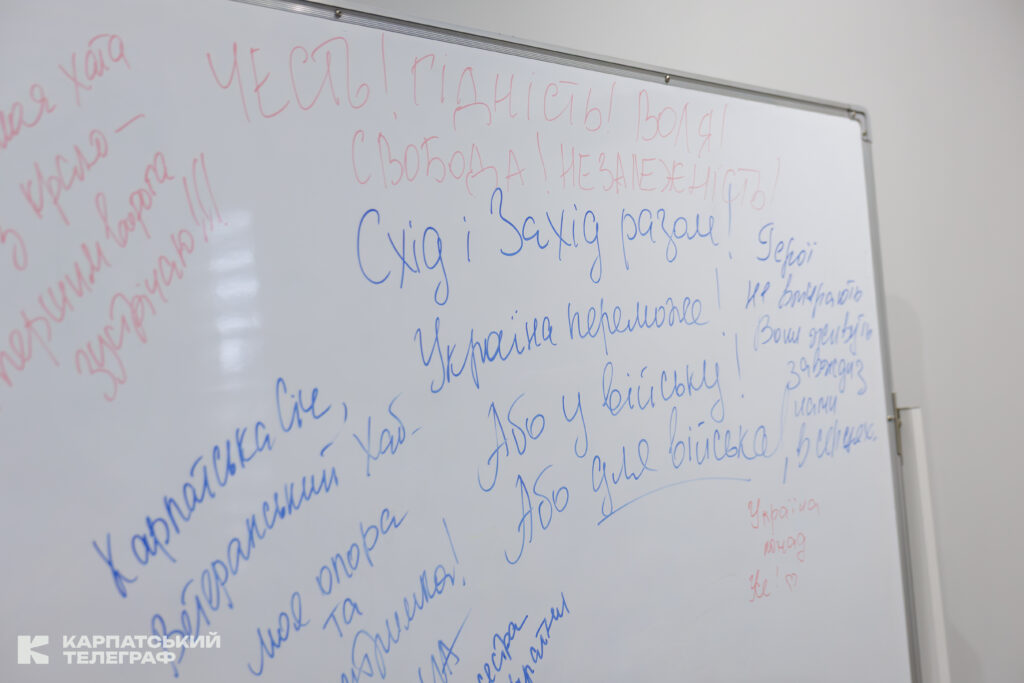 хата
з крісло –
першим ворога
зустрічаю!!!
ЧЕСТЬ! ГІДНІСТЬ! ВОЛЯ!
СВОБОДА! НЕЗАЛЕЖНІСТЬ!
Схід і Захід разом!
Україна переможе!
Або у війську!
Або для війська
Герої
не вмирають
Вони живуть
завжди з
нами
, в серцях.
Україна
понад
Карпатська Січ,
Ветеранський Хаб-
моя опора
та
сестра
КАРПАТСЬКИЙ
ТЕЛЕГРАФ